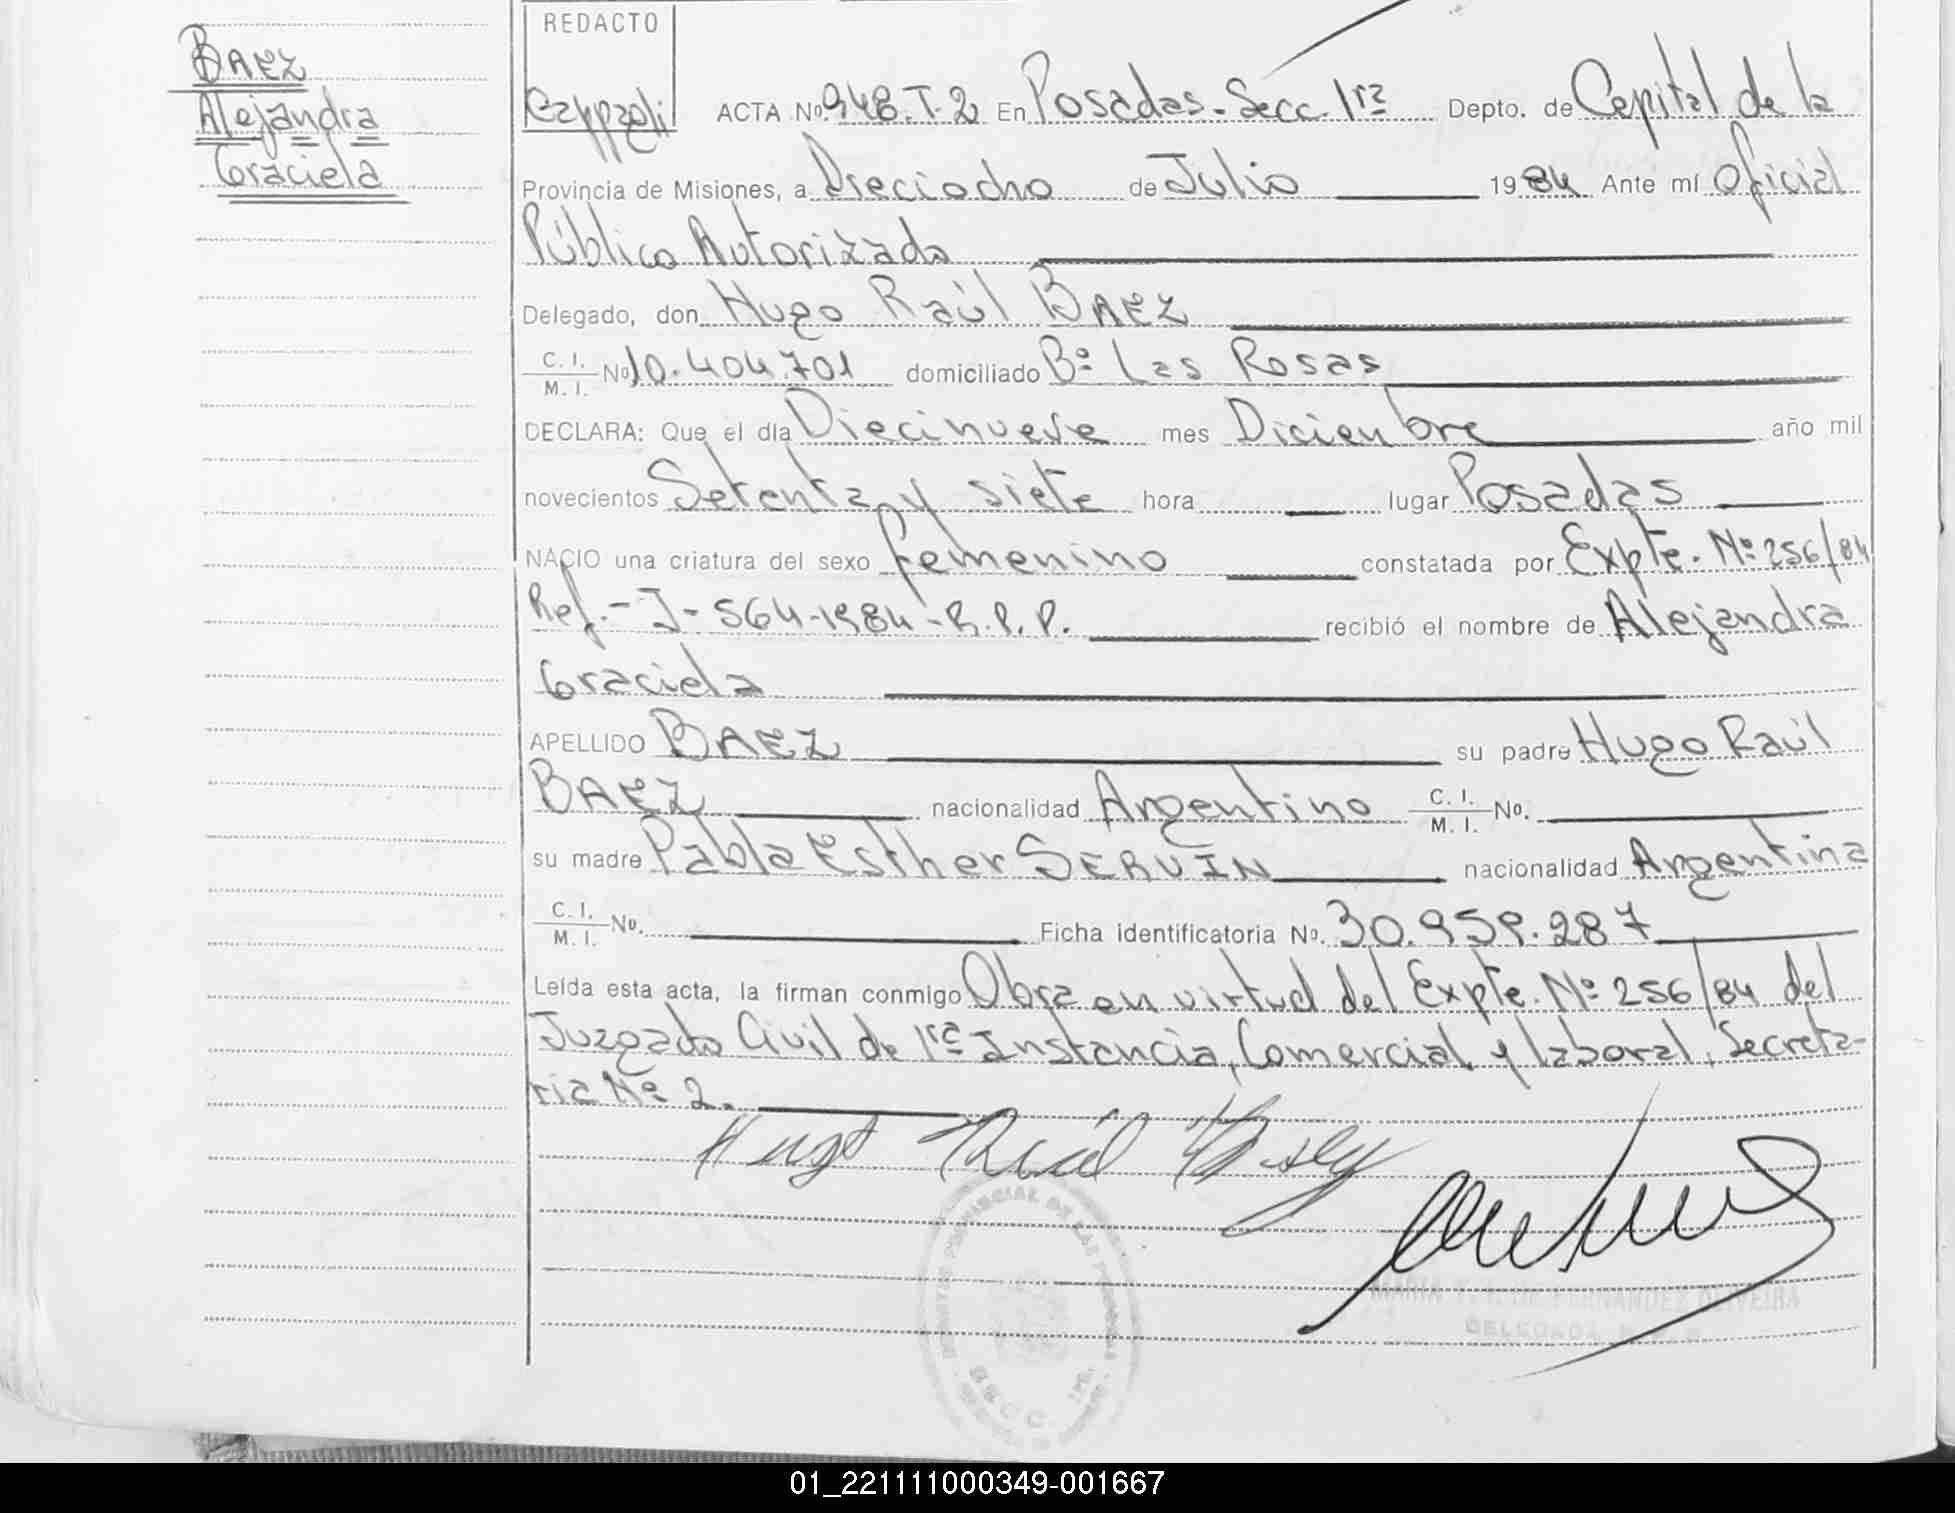 BAEZ
Alejandra
Graciela
REDACTO
ACTA Nº 948.T.2 En Posadas-Secc. 1ra Depto. de Capital de la
Provincia de Misiones, a Dieciocho de Julio 1984 Ante mí Oficial
Público Autorizado
Delegado, don Hugo Raúl BAEZ
C. I.
M. I. Nº 10.404.701 domiciliado Bº Las Rosas
DECLARA: Que el día Diecinueve mes Diciembre año mil
novecientos Setenta y siete hora lugar Posadas
NACIO una criatura del sexo femenino constatada por Expte. Nº 256/84
Ref.-J-564-1984-R.P.P. recibió el nombre de Alejandra
Graciela
APELLIDO BAEZ su padre Hugo Raúl
BAEZ nacionalidad Argentino C. I. M. I. Nº.
su madre Pabla Esther SERVIN nacionalidad Argentina
C. I.
M. I. Nº. Ficha identificatoria Nº. 30.959.287
Leída esta acta, la firman conmigo Obra en virtud del Expte. Nº 256/84 del
Juzgado Civil de 1ra Instancia, Comercial y laboral, Secreta-
ria Nº 2.
Hugo Raúl
FERNANDEZ OLIVEIRA
01_221111000349-001667